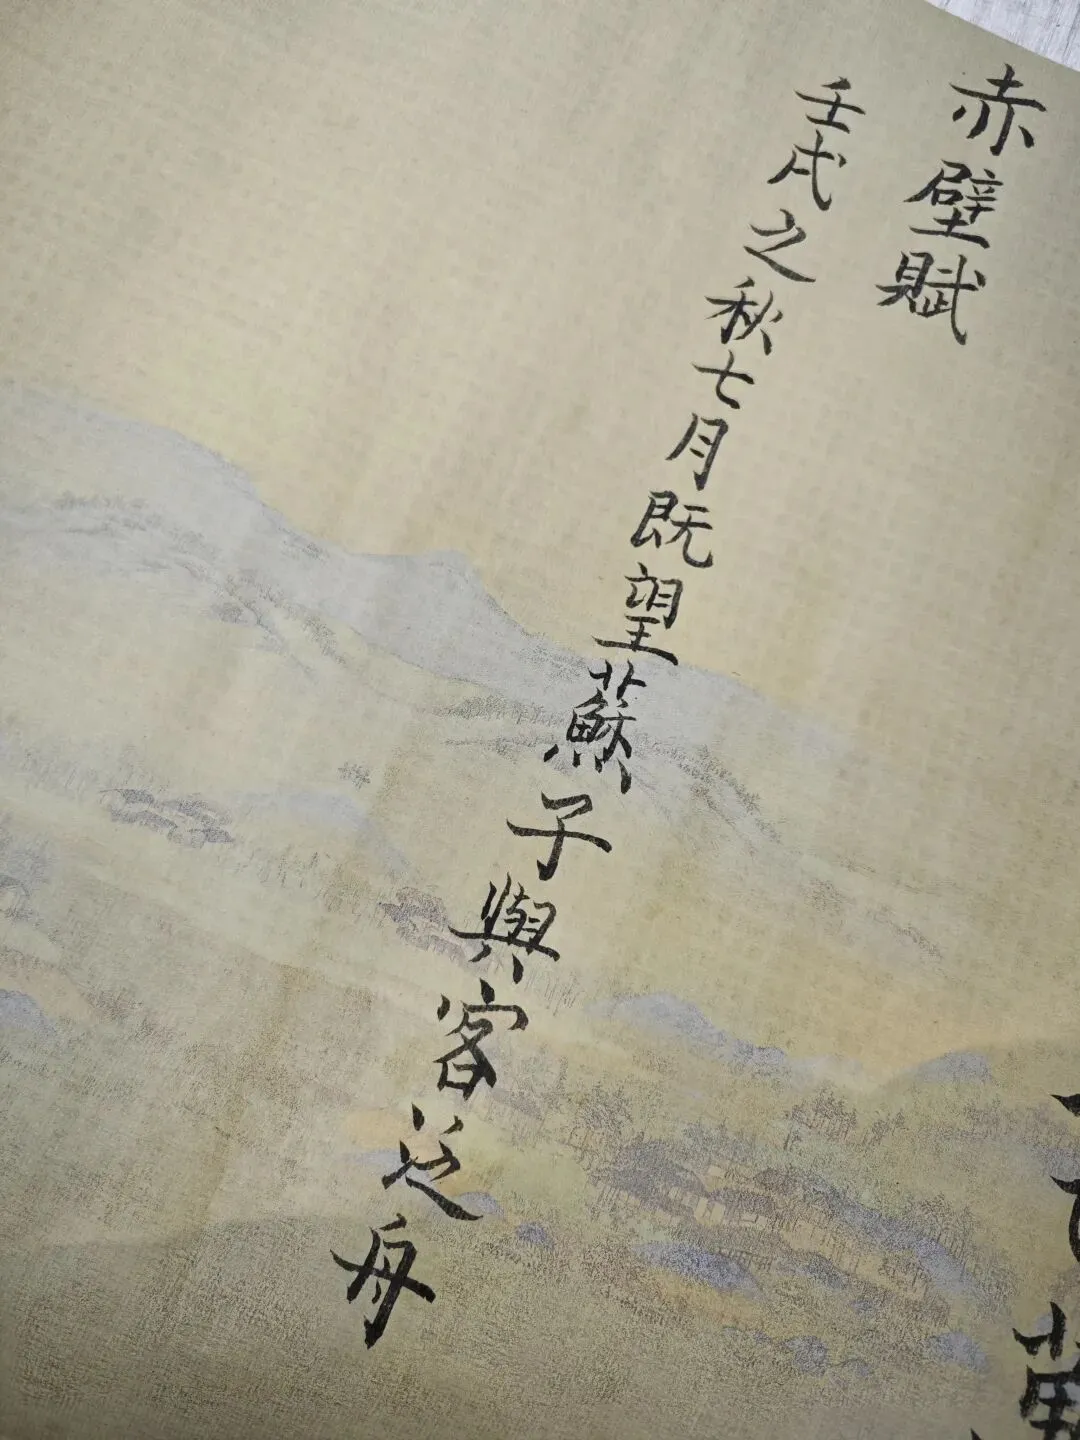 赤壁賦
壬戌之秋七月既望蘇子與客泛舟